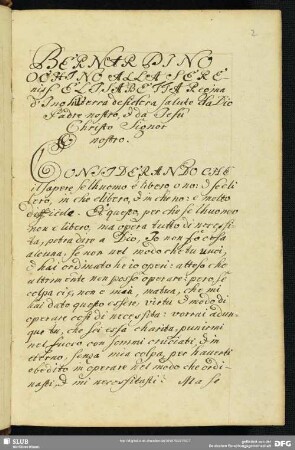 2
BERNARDINO
OCHINO ALLA SERE-
niss. ELISABETTA Regina
d'Inghilterra desidera salute da Dio
Padre nostro, & da Jesu
Christo Signor
nostro.
CONSIDERANDO CHE
il sapere se l'huomo è libero o no: & se è li
bero, in che è libero, & in che no: è molto
difficile. Et questo, perche se l'huomo
non è libero, ma opera tutto di necessi-
ta, potra dire a Dio, Io non fo cosa
alcuna, se non nel modo che tu vuoi,
& hai ordinato che io operi: atteso che
altrimente non posso operare: però, in
colpa ci è, non è mia, ma tua, che mi
hai dato questo essere, virtu & modo di
operare cosi di necessita: vorrai adun-
que tu, che sei essa charita, punirmi
nel fuoco con sommi cruciati, & in
eterno, senza mia colpa, per haverti
obedito in operare nel modo che ordi-
nasti, & mi necessitasti: Ma se
SLUB
DFG